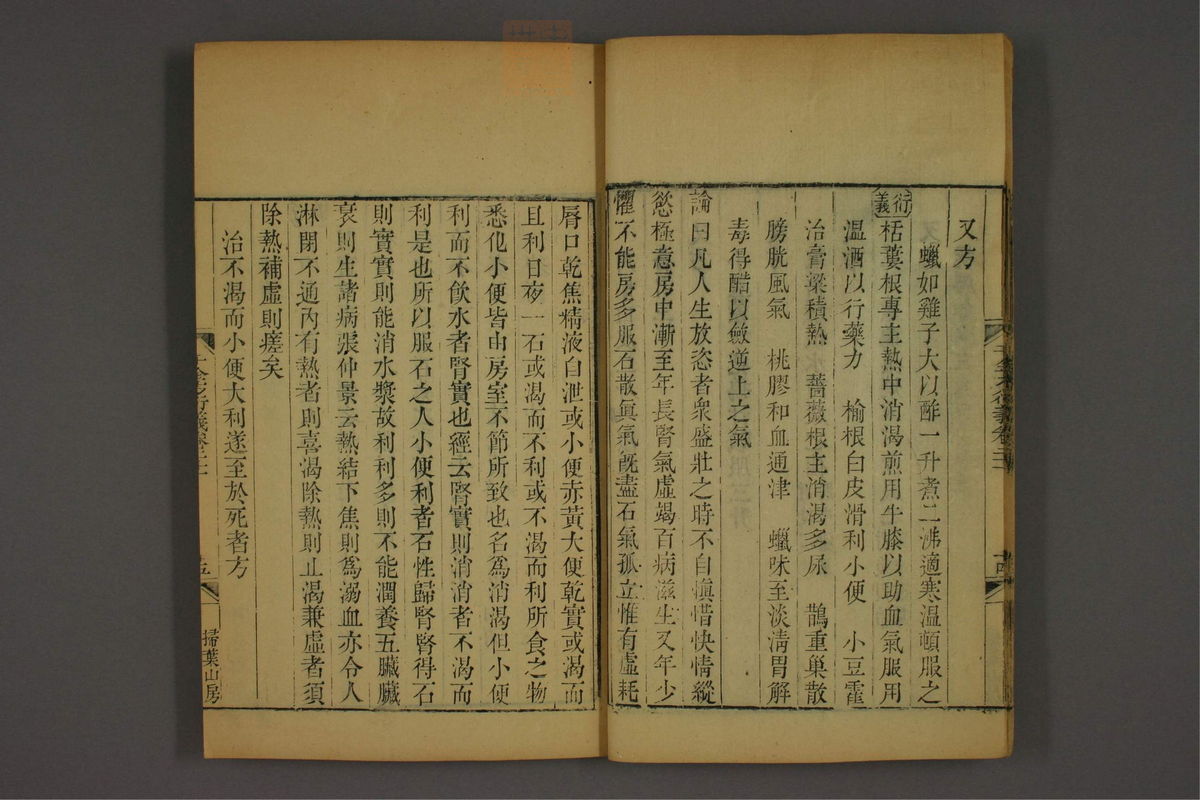 又方
蠟如雞子大以酢一升煮二沸適寒溫頓服之
衍義
栝蔞根專主熱中消渴煎用牛膝以助血氣服用
溫酒以行藥力　榆根白皮滑利小便　小豆霍
治膏粱積熱　薔薇根主消渴多尿　鵲重巢散
膀胱風氣　桃膠和血通津　蠟味至淡淸胃解
毒得醋以斂逆上之氣
論曰凡人生放恣者衆盛壯之時不自愼惜快情縱
慾極意房中漸至年長腎氣虛竭百病滋生又年少
懼不能房多服石散眞氣旣盡石氣孤立惟有虛耗
脣口乾焦精液自泄或小便赤黃大便乾實或渴而
且利日夜一石或渴而不利或不渴而利所食之物
悉化小便皆由房室不節所致也名爲消渴但小便
利而不飮水者腎實也經云腎實則消消者不渴而
利是也所以服石之人小便利者石性歸腎腎得石
則實實則能消水漿故利利多則不能潤養五臟臟
衰則生諸病張仲景云熱結下焦則爲溺血亦令人
淋閉不通內有熱者則喜渴除熱則止渴兼虛者須
除熱補虛則瘥矣
治不渴而小便大利遂至於死者方
掃葉山房